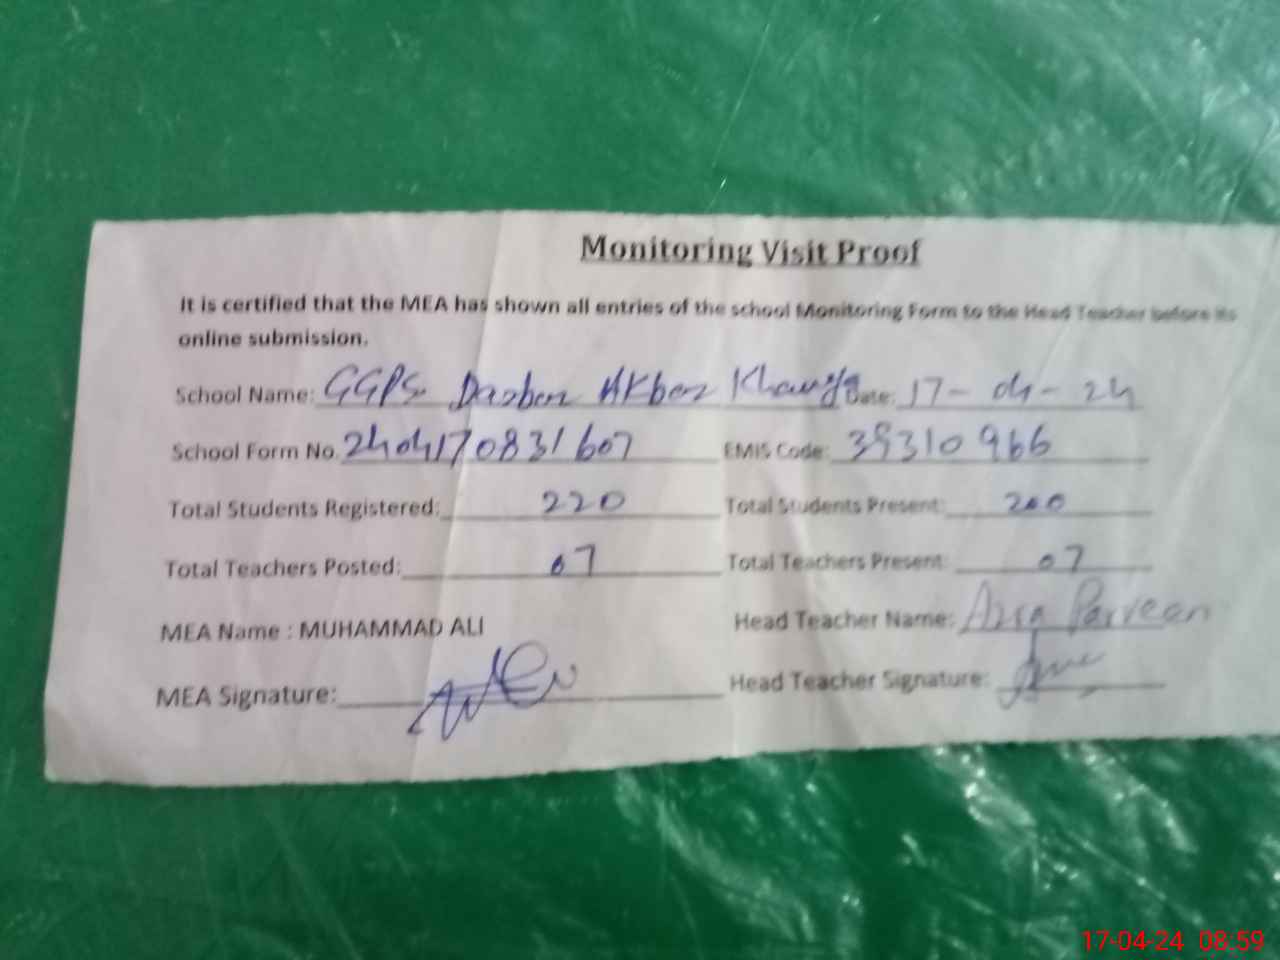 Monitoring Visit Proof
It is certified that the MEA has shown all entries of the school Monitoring Form to the Head Teacher before its
online submission.
School Name: GGPS Akber Date: 17-04-24
School Form No. 2404170831607 EMIS Code: 39310966
Total Students Registered: 220 Total Students Present: 200
Total Teachers Posted: 07 Total Teachers Present: 07
MEA Name : MUHAMMAD ALI Head Teacher Name: Parveen
MEA Signature: Head Teacher Signature:
17-04-24 08:59